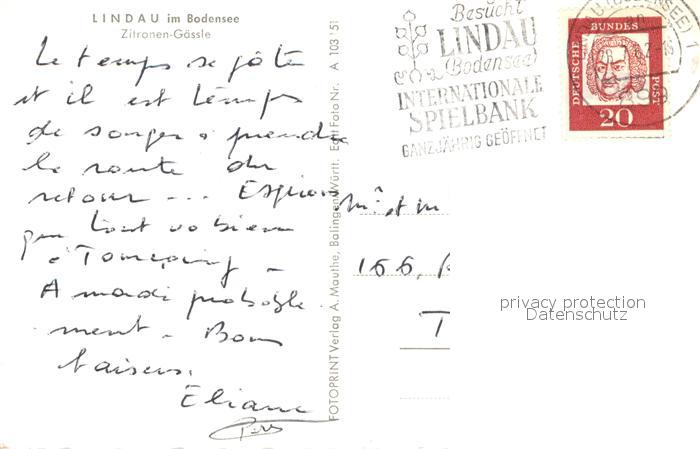 LINDAU im Bodensee
Zitronen-Gässle
Le temps se gâte
et il est temps
de songer à prendre
la route du
retour ... Espérons
que tout va bien
à
A mardi probable
ment - Bons
baisers.
Eliane
FOTOPRINT Verlag A. Mauthe, Balingen/Württ. Echt Foto Nr. A 103 '51
Besucht
LINDAU
(Bodensee)
INTERNATIONALE
SPIELBANK
GANZJÄHRIG GEÖFFNET
DEUTSCHE BUNDESPOST
20
Mr et M
166,
T
privacy protection
Datenschutz